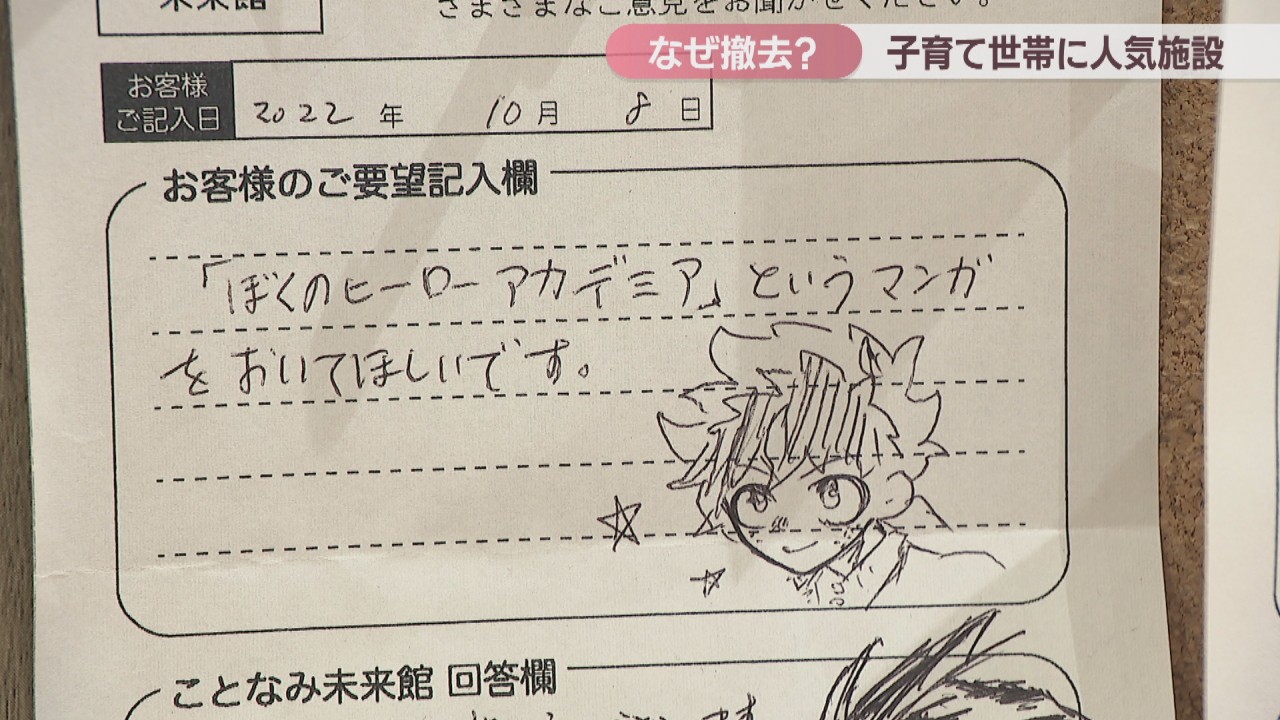 未来館
さまざまなご意見をお聞かせください。
なぜ撤去？ 子育て世帯に人気施設
お客様
ご記入日
2022 年 10 月 8 日
お客様のご要望記入欄
「ぼくのヒーローアカデミア」というマンガ
をおいてほしいです。
ことなみ未来館 回答欄